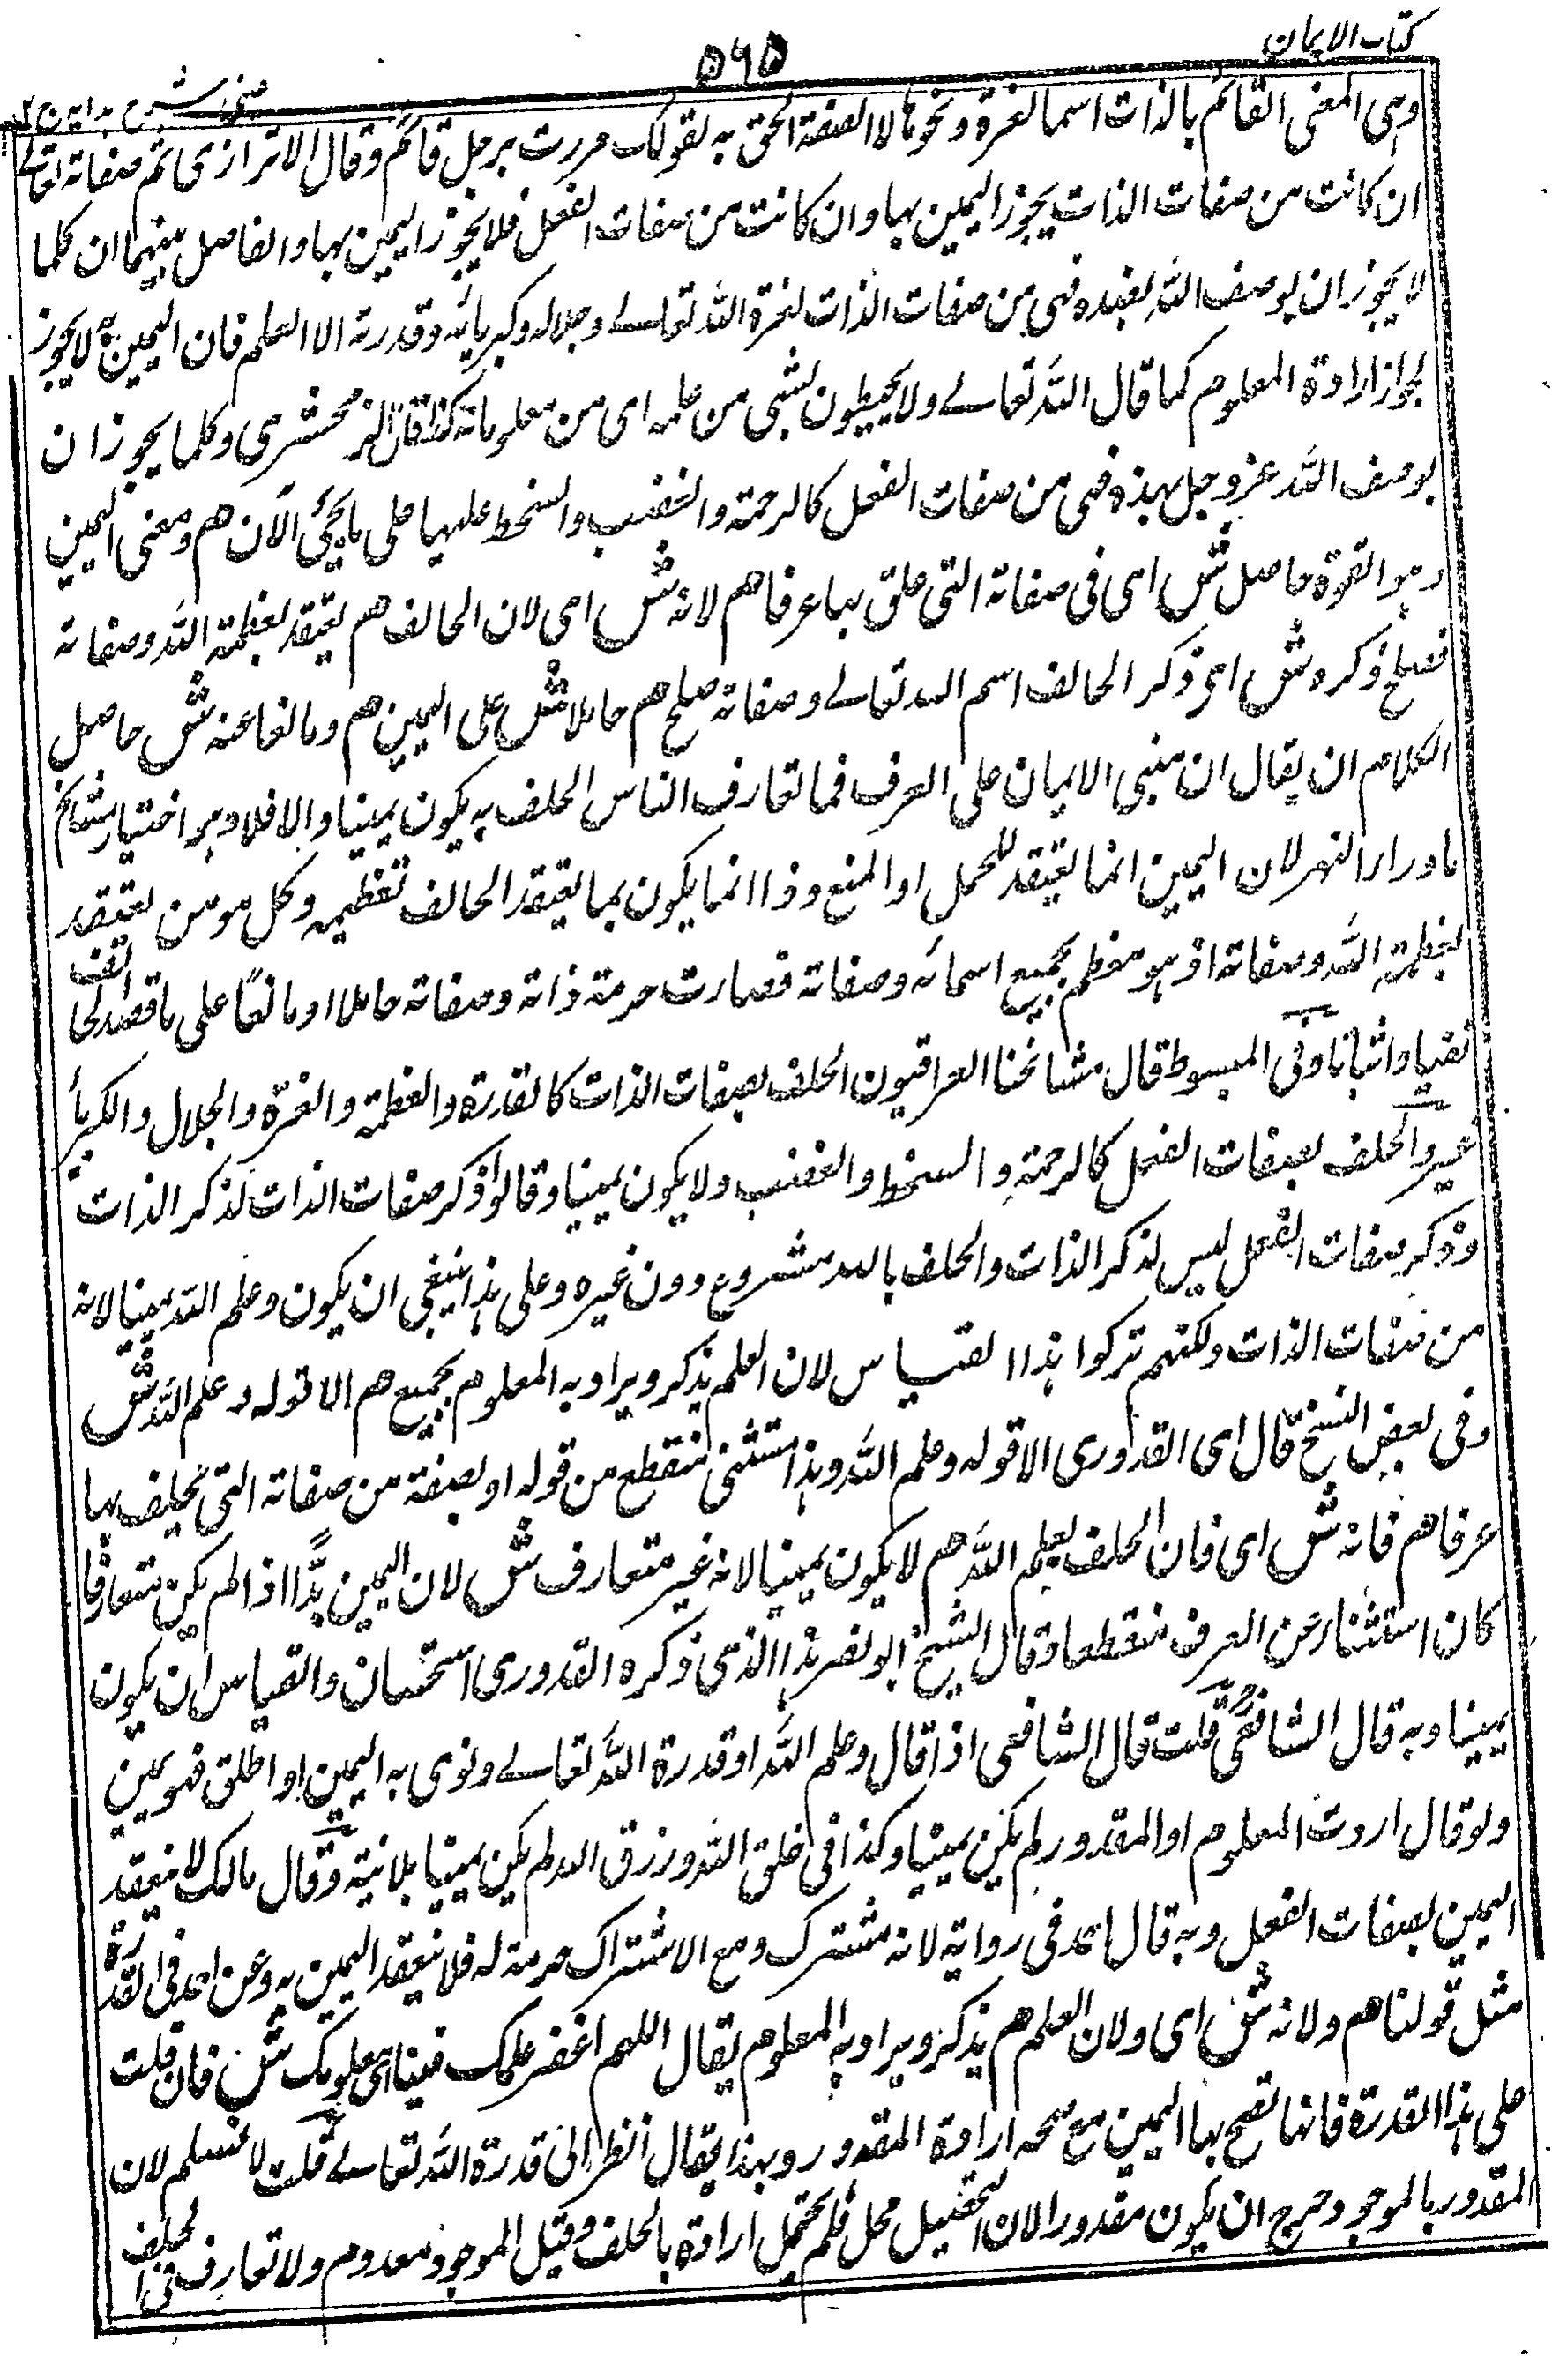 كتاب الايمان
۵۶۵
عينى شرح هدايه ج ۲
وهى المعنى القائم بالذات اسما لغرة ونحوها لا الصفة الحق به لقولك مررت برجل قائم وقال الاترازى ثم صفاته تعالى
ان كانت من صفات الذات يجوز اليمين بها وان كانت من صفات الفعل فلا يجوز اليمين بها والفاصل بينهما ان كلما
لا يجوز ان يوصف الله بضده فهى من صفات الذات لعزة الله تعالے وجلاله وكبريائه وقدرته الا العلم فان اليمين به لا يجوز
لجواز ارادة المعلوم كما قال الله تعالے ولا يحيطون بشى من علمه اى من معلوماته كذا قال الزمخشرى وكلما يجوز ان
يوصف الله عزوجل بهذه فهى من صفات الفعل كالرحمة والغضب والسخط عليها على ما يجئ الآن هم ومعنى اليمين
وهو القوة حاصل ش اى فى صفاته التى حلق بها عرفا هم لانه ش اى لان الحالف هم يعتقد لعظمة الله وصفاته
فصلح ذكره ش اى ذكر الحالف اسم الله تعالے وصفاته صلح هم حاملا ش على اليمين هم ومانعا عنه ش حاصل
الكلام ان يقال ان مبنى الايمان على العرف فما تعارف الناس الحلف به يكون يمينا والا فلا وهو اختيار مشائخ
ماوراء النهر لان اليمين انما تعتقد للحمل او المنع وذا انما يكون بما يعتقد الحالف تعظيمه وكل مومن يعتقد
لعظمة الله وصفاته اذ هو معظم بجميع اسمائه وصفاته فصارت حرمة ذاته وصفاته حاملا او مانعا على ما قصد الحالف
نفيا واثباتا وفى المبسوط قال مشائخنا العراقيون الحلف بصفات الذات كالقدرة والعظمة والعزة والجلال والكبرياء
غير والحلف بصفات الفعل كالرحمة والسخط والغضب ولا يكون يمينا وقالوا ذكر صفات الذات لذكر الذات
وذكر صفات الفعل ليس لذكر الذات والحلف بالله مشروع دون غيره وعلى هذا ينبغى ان يكون وعلم الله يمينا لانه
من صفات الذات ولكنهم تركوا هذا القياس لان العلم يذكر ويراد به المعلوم بجميع هم الا قوله وعلم الله ش
وفى بعض النسخ قال اى القدورى الا قوله وعلم الله وهذا مستثنى منقطع من قوله او بصفة من صفاته التى يحلف بها
عرفا هم فانه ش اى فان الحلف بعلم الله هم لا يكون يمينا لانه غير متعارف ش لان اليمين بهذا اذا لم يكن متعارفا
كان استثناء عن العرف منقطعا وقال الشيخ ابو نصر هذا الذى ذكره القدورى استحسان والقياس ان يكون
يمينا وبه قال الشافعى قلت قال الشافعى اذا قال وعلم الله او قدرة الله تعالے ونوى به اليمين او اطلق فهو يمين
ولو قال اردت المعلوم او المقدور لم يكن يمينا وكذا فى خلق الله ورزق الله لم يكن يمينا بلا نية وقال مالك لا ينعقد
اليمين بصفات الفعل وبه قال احمد فى رواية لانه مشترك ومع الاشتراك حرمة له فلا ينعقد اليمين به وعن احمد فى القدرة
مثل قولنا هم ولانه ش اى ولان العلم هم يذكر ويراد به المعلوم يقال اللهم اغفر علمك فينا اى معلومك ش فان قلت
على هذا القدرة فانها تصح بها اليمين مع صحة ارادة المقدور وبهذا يقال انظر الى قدرة الله تعالے قلت لا نسلم لان
المقدور بالموجود خرج ان يكون مقدورا لان التحصيل محل فلم يحتمل ارادة بالحلف وقيل الموجود معدوم ولا تعارف فى الحلف